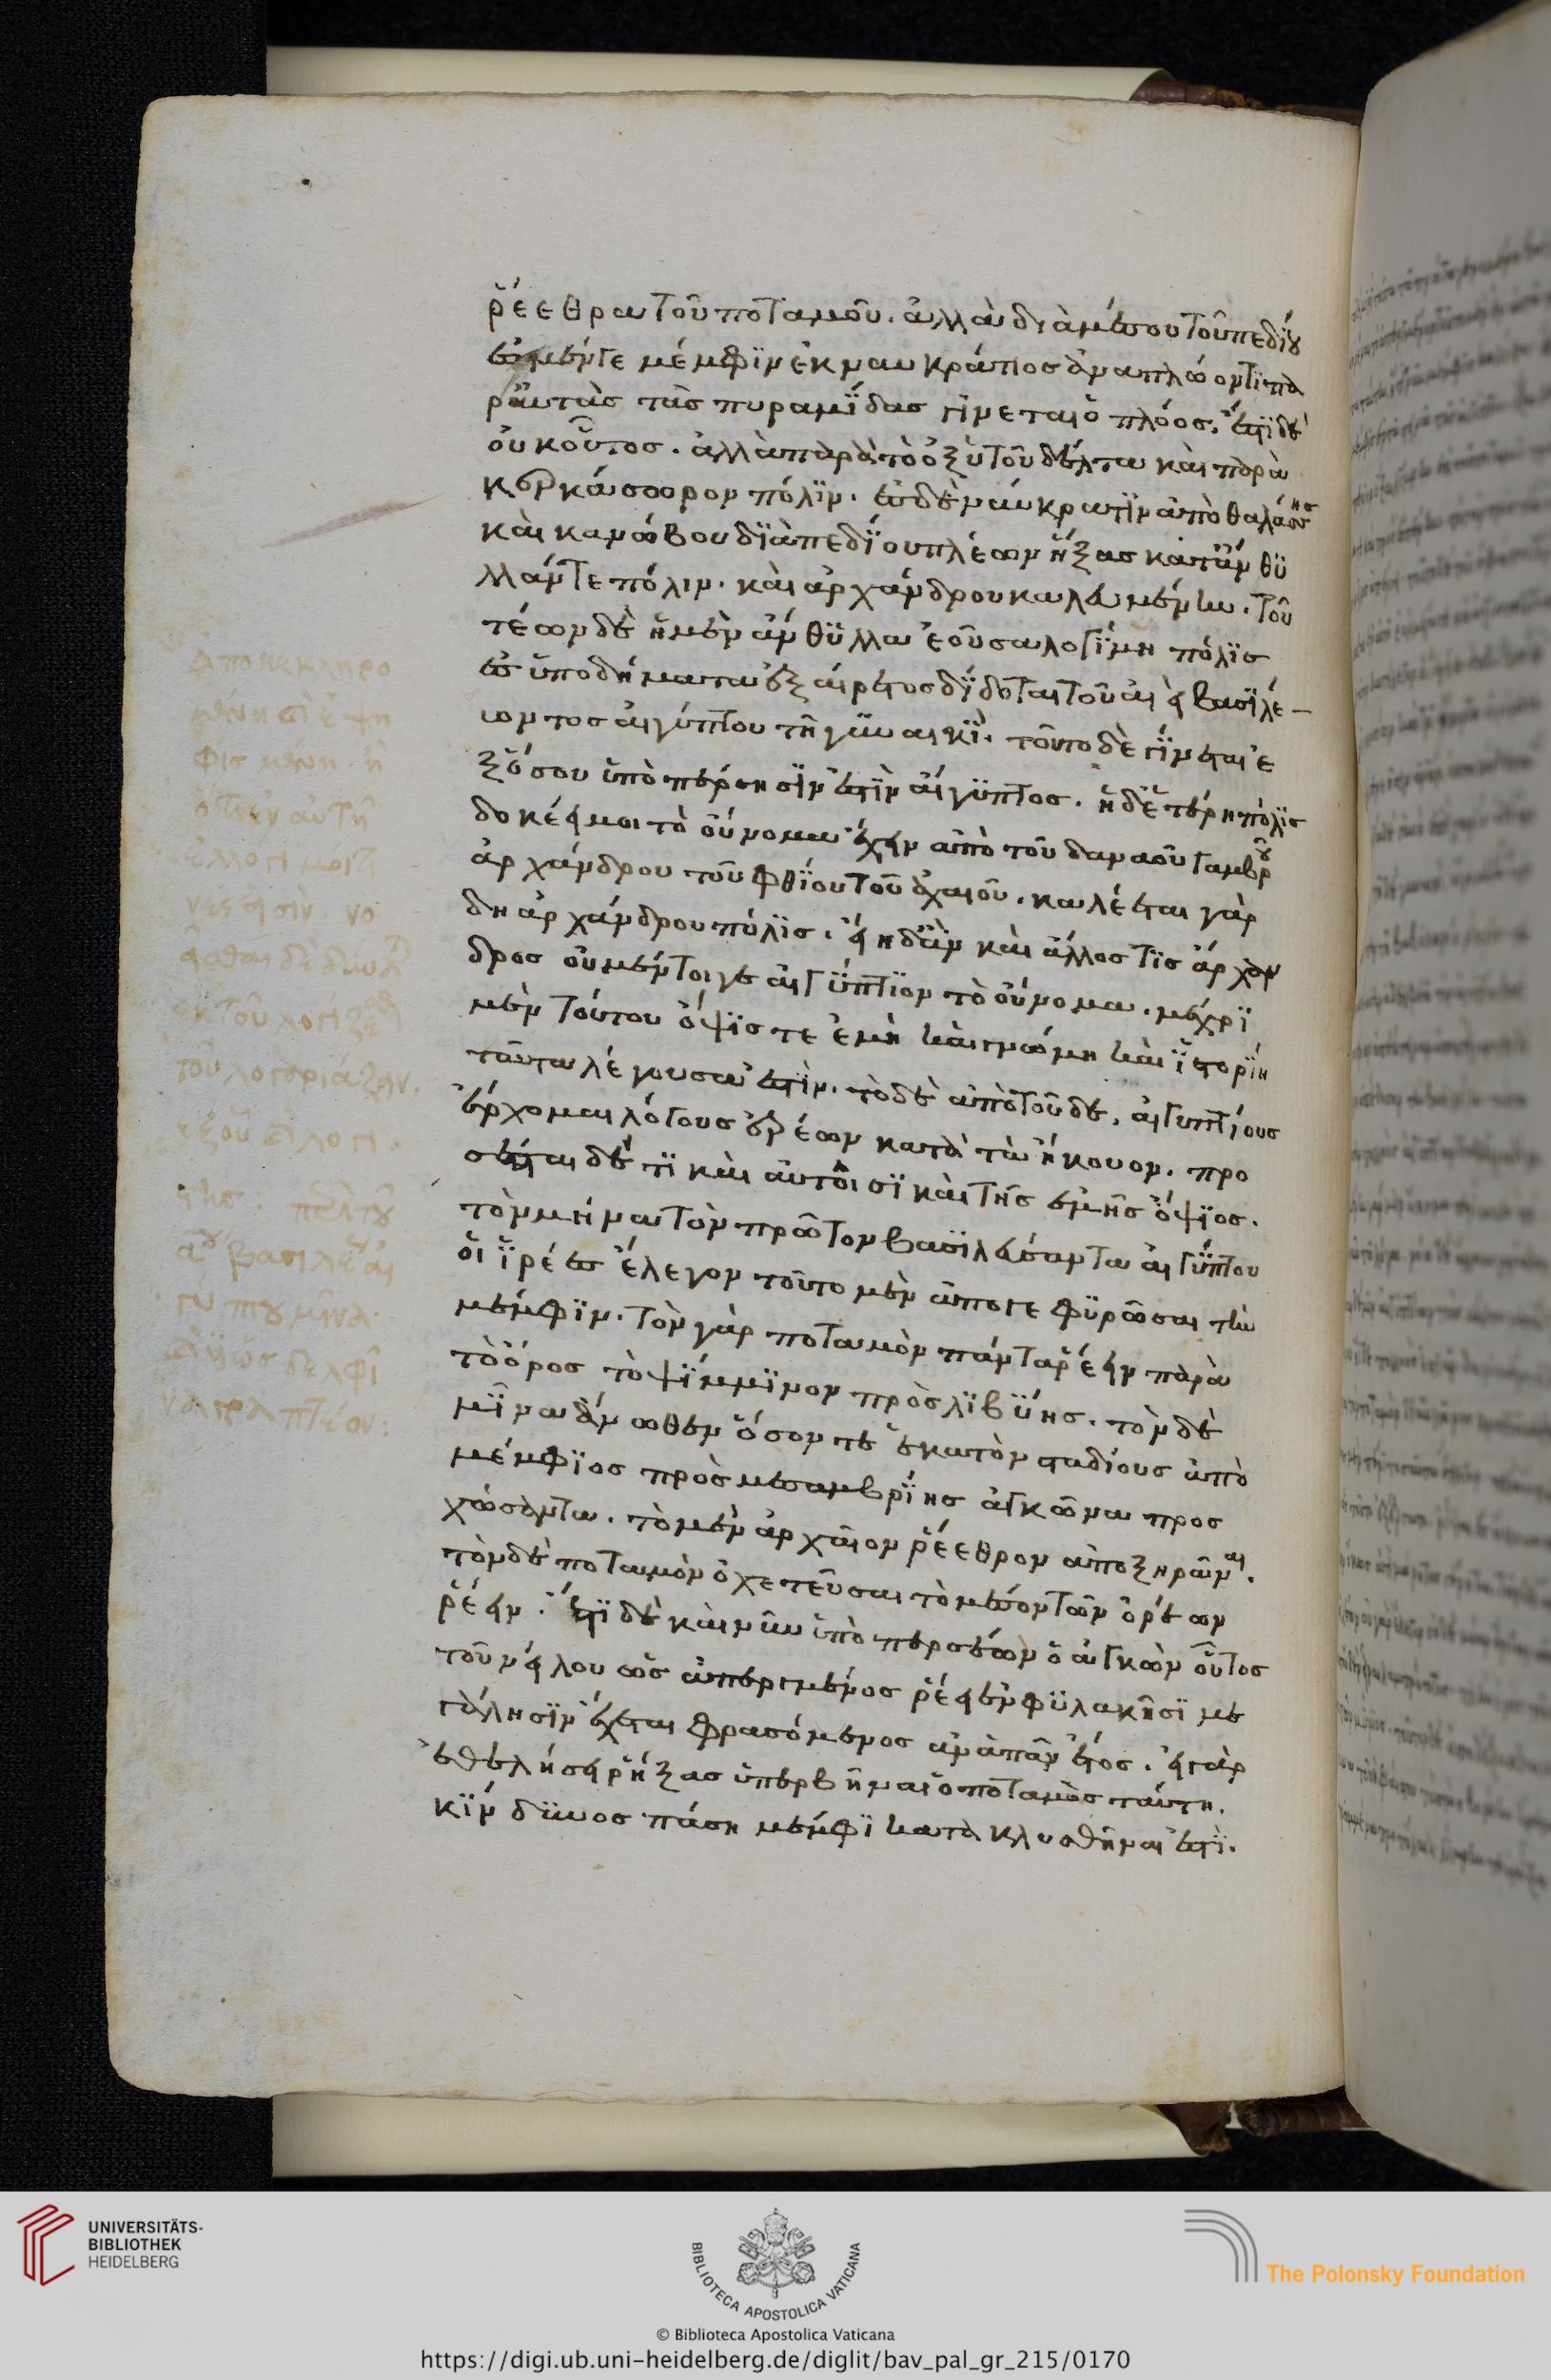 ῥέεθρα τοῦ ποταμοῦ. ἀλλὰ διὰ μέσου τοῦ πεδίου
ἐς μέν γε μέμφιν ἐκ ναυκράτιος ἀναπλώοντι πα
ρ᾽ αὐτὰς τὰς πυραμίδας γίνεται ὁ πλόος. ἔστι δὲ
οὐκ οὗτος. ἀλλὰ παρὰ τὸ ὀξὺ τοῦ δέλτα καὶ παρὰ
κερκάσωρον πόλιν. ἐς δὲ ναύκρατιν ἀπὸ θαλάσσης
καὶ κανώβου διὰ πεδίου πλέων ἥξας κατ᾽ ἄνθυ
λλάν τε πόλιν. καὶ ἀρχάνδρου καλευμένην. του
τέων δὲ ἡ μὲν ἄνθυλλα ἐοῦσα λογίμη πόλις
ἐς ὑποδήματα ἐξαίρετος δίδοται τοῦ αἰεὶ βασιλεύ
οντος αἰγύπτου τῇ γυναικί. τοῦτο δὲ γίνεται ἐ
ξ ὅσου ὑπὸ πέρσησίν ἐστιν αἴγυπτος. ἡ δ᾽ ἑτέρη πόλις
δοκέει μοι τὸ οὔνομα ἔχειν ἀπὸ τοῦ δαναοῦ γαμβροῦ
ἀρχάνδρου τοῦ φθίου τοῦ ἀχαιοῦ. καλέεται γὰρ
δὴ ἀρχάνδρου πόλις. εἴη δ᾽ ἂν καὶ ἄλλος τις ἄρχαν
δρος οὐ μέντοι γε αἰγύπτιον τὸ οὔνομα. μέχρι
μὲν τούτου ὄψις τε ἐμὴ καὶ γνώμη καὶ ἱστορίη
ταῦτα λέγουσα ἐστίν. τὸ δὲ ἀπὸ τοῦδε, αἰγυπτίους
ἔρχομαι λόγους ἐρέων κατὰ τὰ ἤκουον. προ
σέσται δέ τι καὶ αὐτοῖσι καὶ τῆς ἐμῆς ὄψιος.
τὸν μῆνα τὸν πρῶτον βασιλεύσαντα αἰγύπτου
οἱ ἱρέες ἔλεγον τοῦτο μὲν ἀπογεφυρῶσαι τὴν
μέμφιν. τὸν γὰρ ποταμὸν πάντα ῥέειν παρὰ
τὸ ὄρος τὸ ψίμμινον πρὸς λιβύης. τὸν δὲ
μῖνα ἄνωθεν ὅσον τε ἑκατὸν σταδίους ἀπὸ
μέμφιος πρὸς μεσαμβρίης ἀγκῶνα προσ
χώσαντα. τὸ μὲν ἀρχαῖον ῥέεθρον ἀποξηρᾶναι.
τὸν δὲ ποταμὸν ὀχετεῦσαι τὸ μέσον τῶν ὀρέων
ῥέειν. ἔτι δὲ καὶ νῦν ὑπὸ περσέων ὁ ἀγκὼν οὗτος
τοῦ νείλου ὡς ἀπεργμένος ῥέει ἐν φυλακῇσι με
γάλησιν ἔχεται φρασόμενος ἀνὰ πᾶν ἔτος. εἰ γὰρ
ἐθελήσει ῥήξας ὑπερβῆναι ὁ ποταμὸς ταύτῃ.
κίνδυνος πάσῃ μέμφι κατακλυσθῆναί ἐστι.
UNIVERSITÄTS-
BIBLIOTHEK
HEIDELBERG
BIBLIOTECA APOSTOLICA VATICANA
The Polonsky Foundation
© Biblioteca Apostolica Vaticana
https://digi.ub.uni-heidelberg.de/diglit/bav_pal_gr_215/0170